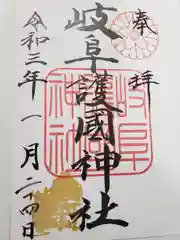 奉拝
岐阜護國神社
令和三年一月二十四日
岐阜
神社